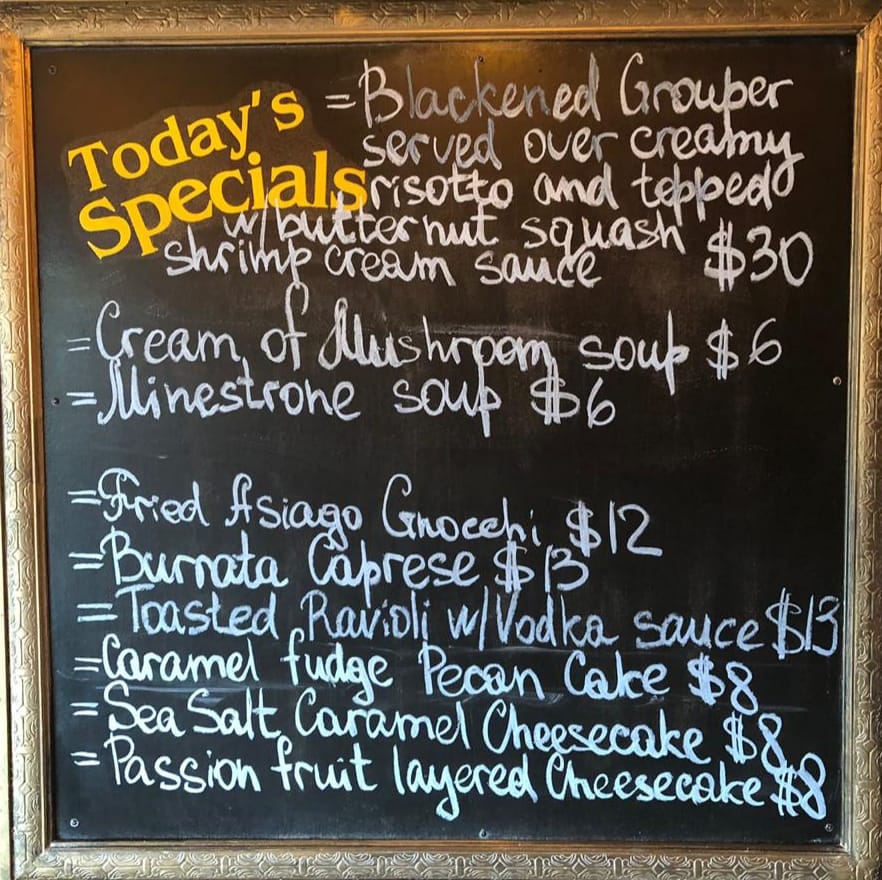 Today's
Specials
=Blackened Grouper
served over creamy
risotto and topped
w/butternut squash
shrimp cream sauce $30
=Cream of Mushroom soup $6
=Minestrone soup $6
=Fried Asiago Gnocchi $12
=Burrata Caprese $13
=Toasted Ravioli w/Vodka sauce $13
=Caramel fudge Pecan Cake $8
=Sea Salt Caramel Cheesecake $8
=Passion fruit layered Cheesecake $8